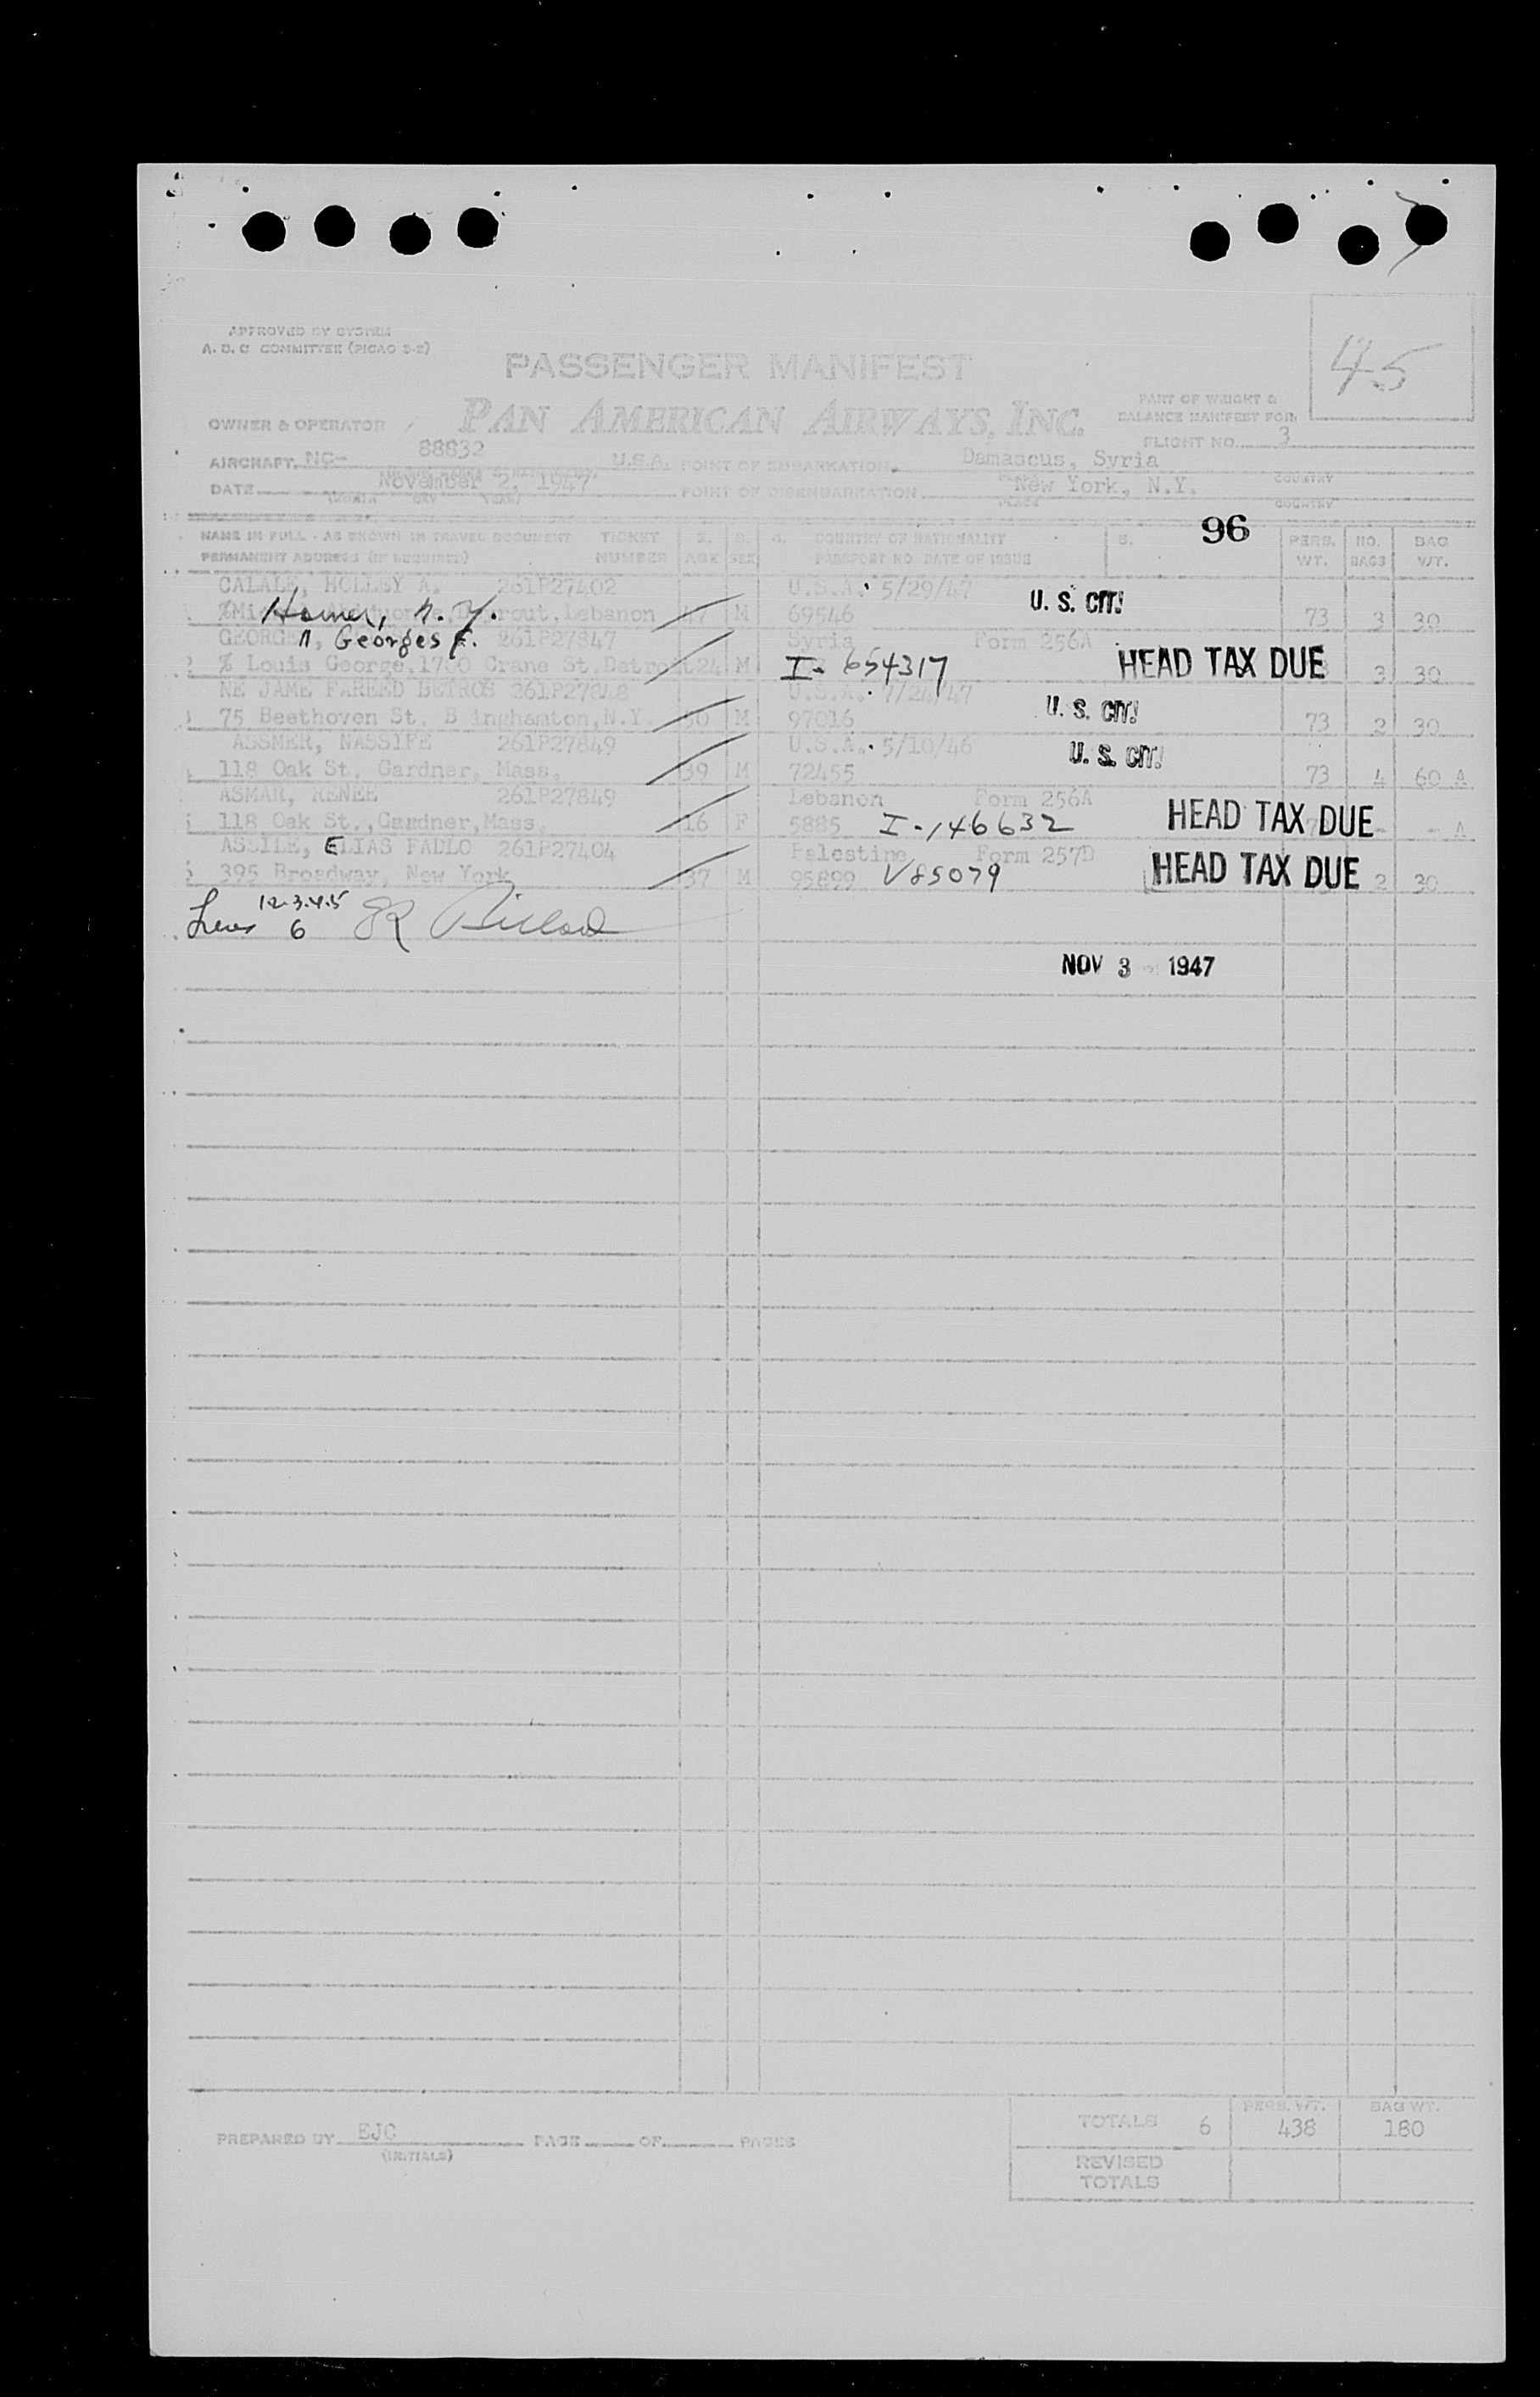 45
APPROVED BY SYSTEM
A. D. C COMMITTEE (PICAO S-2)
PASSENGER MANIFEST
PART OF WEIGHT &
BALANCE MANIFEST FOR:
OWNER & OPERATOR PAN AMERICAN AIRWAYS, INC.
FLIGHT NO. 3
AIRCRAFT. NC- 88832 U.S.A. POINT OF EMBARKATION Damascus, Syria
COUNTRY
DATE November 2, 1947 POINT OF DISEMBARKATION New York, N.Y.
(MONTH DAY YEAR) PLACE COUNTRY
96
NAME IN FULL - AS SHOWN IN TRAVEL DOCUMENT TICKET 2. 3. 4. COUNTRY OF NATIONALITY 5. PERS. NO. BAG
PERMANENT ADDRESS (IF REQUIRED) NUMBER AGE SEX PASSPORT NO DATE OF ISSUE WT. BAGS WT.
CALALE, HOLLEY A. 261P27402 U.S.A. 5/29/47
Homer, N.Y. Lebanon M 69546 U. S. CIT! 73 3 30
GEORGE Georges 261P27847 Syria Form 256A
2 % Louis George, Crane St. Detroit 24 M I- 654317 HEAD TAX DUE 3 30
NE JAME FAREED BETROS 261P27848 U.S.A. 7/24/47
75 Beethoven St. Binghamton, N.Y. 50 M 97016 U. S. CIT! 73 2 30
ASSMER, NASSIFE 261P27849 U.S.A. 5/10/46
118 Oak St. Gardner, Mass. 39 M 72455 U. S. CIT! 73 4 60 A
ASMAR, RENEE 261P27849 Lebanon Form 256A
118 Oak St., Gardner, Mass. 16 F 5885 I-146632 HEAD TAX DUE - - A
ASSILE, ELIAS FADLO 261P27404 Palestine Form 257D
395 Broadway, New York 37 M 95899 V85079 HEAD TAX DUE 2 30
1-2-3-4-5
Lines 6
NOV 3 1947
TOTALS 6 PERS. WT. 438 BAG WT. 180
PREPARED BY EJC PAGE OF PAGES
(INITIALS)
REVISED
TOTALS